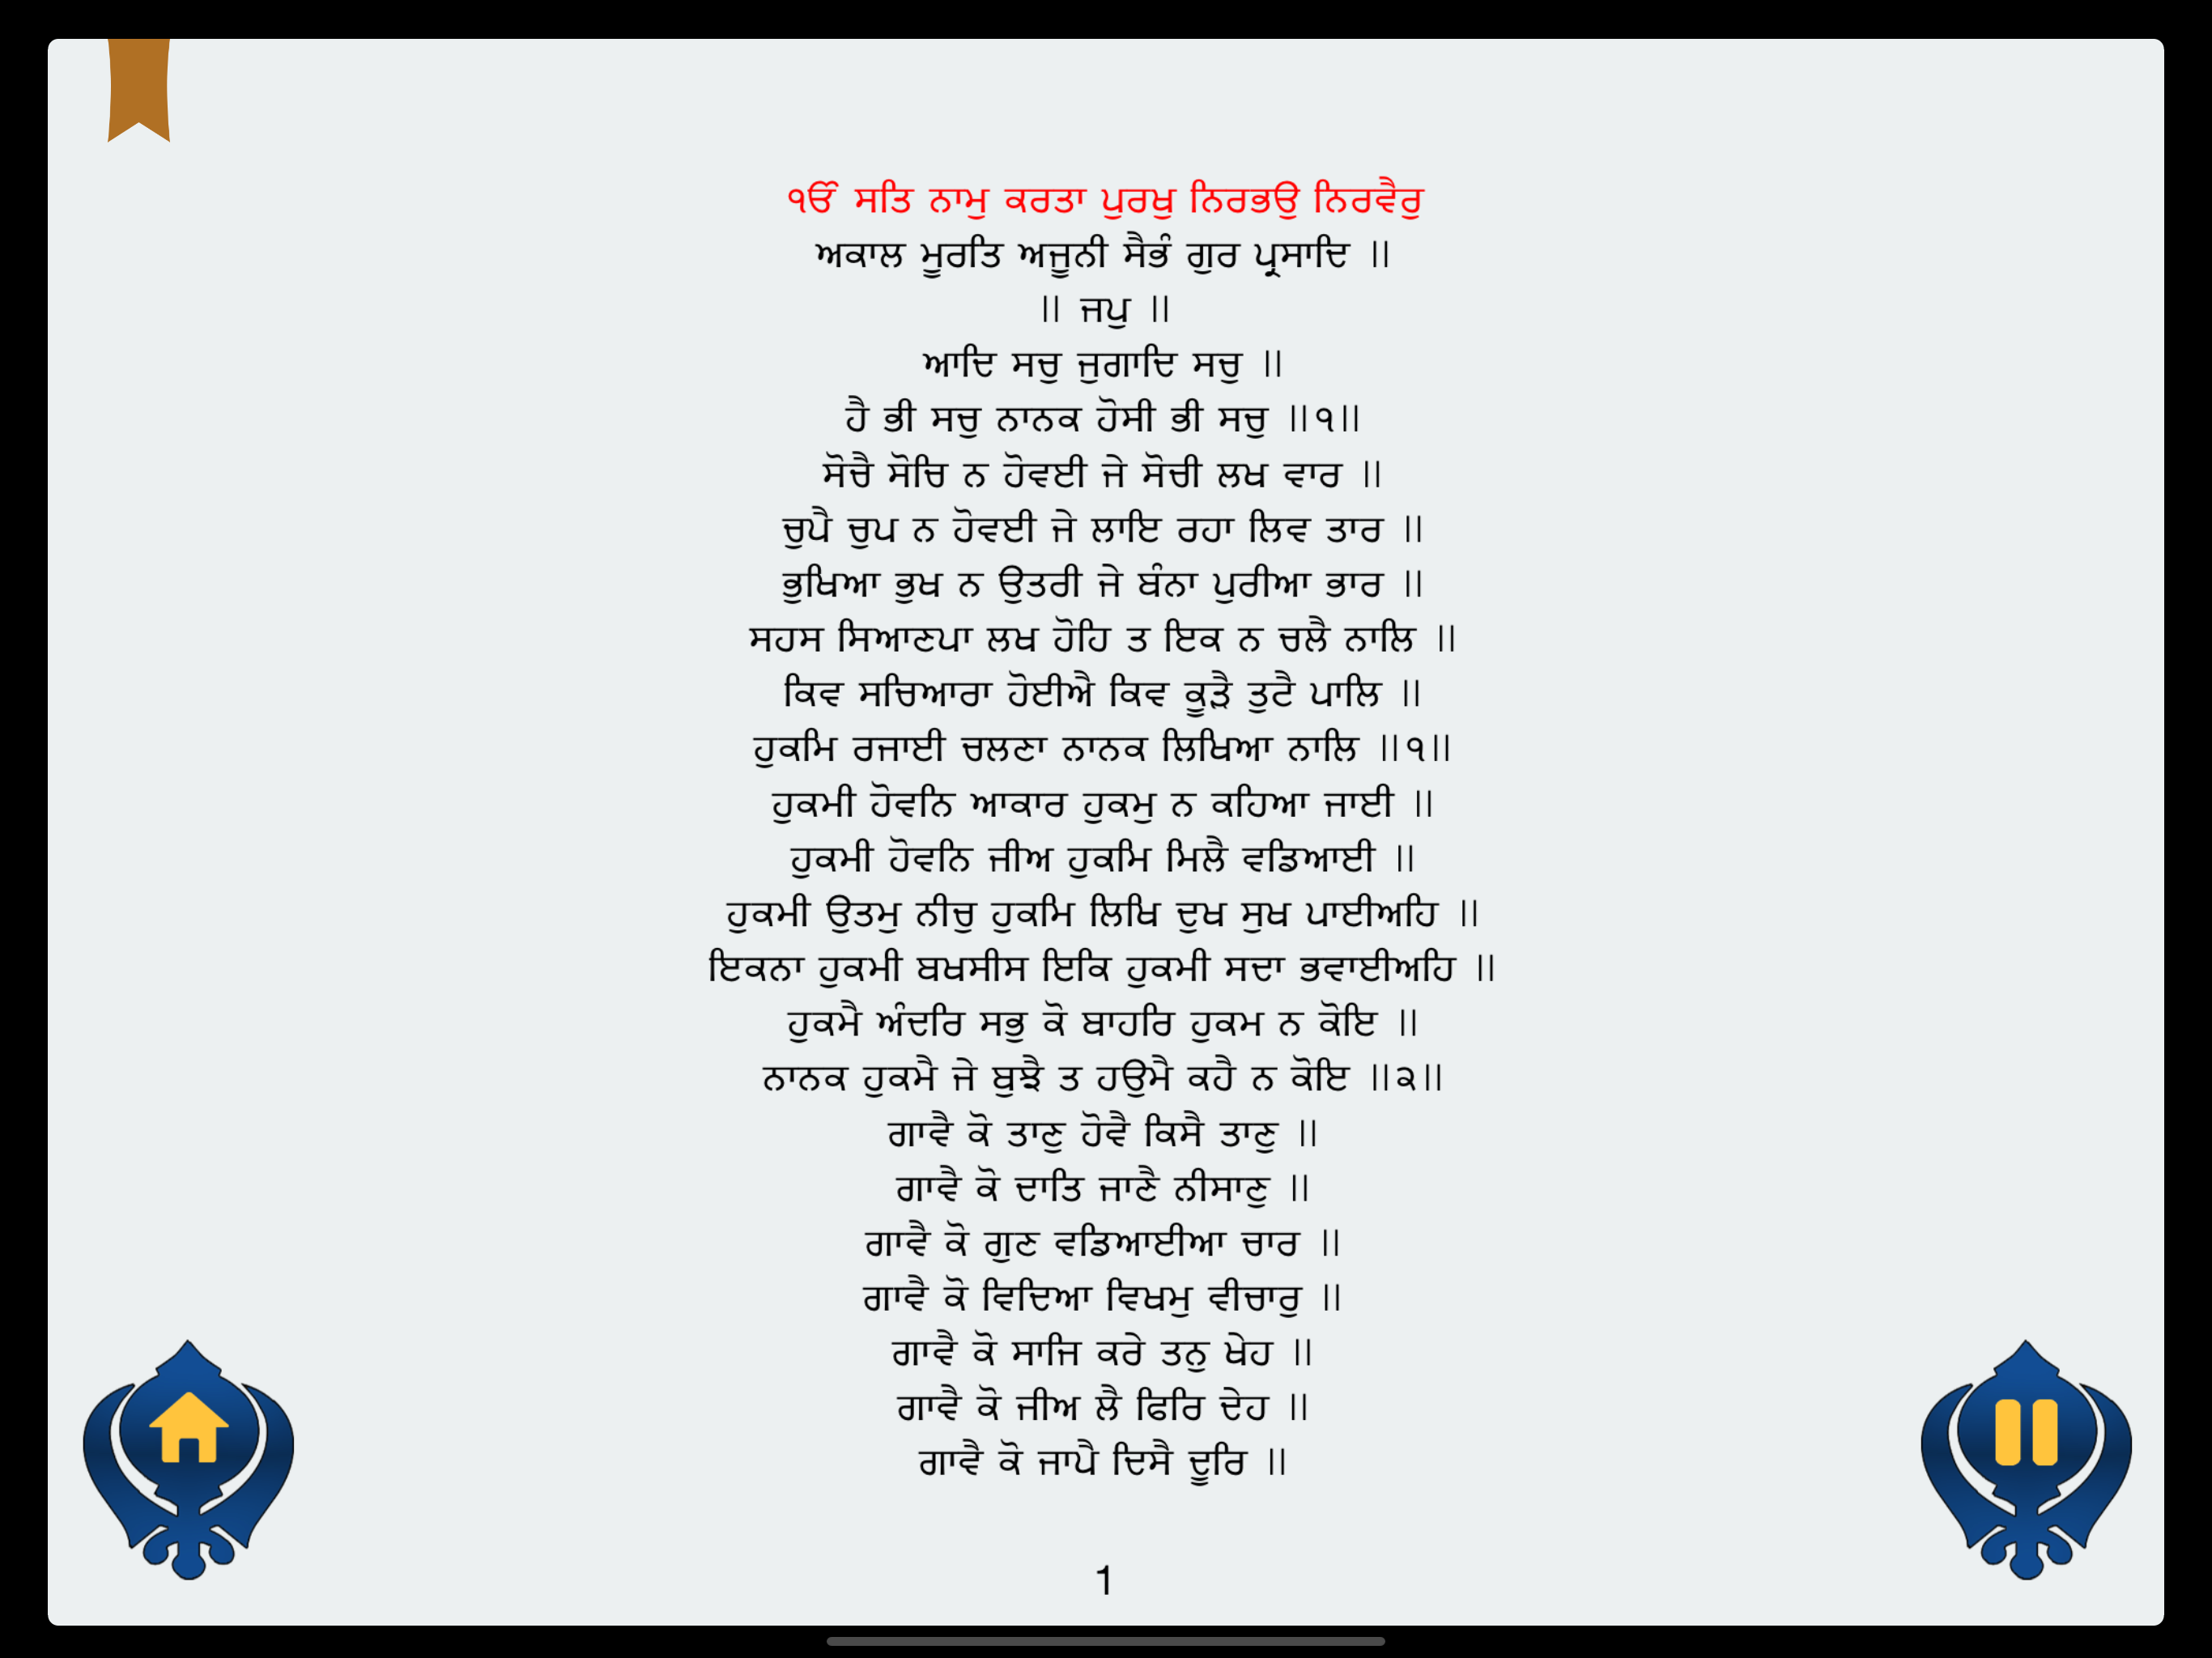 ੴ ਸਤਿ ਨਾਮੁ ਕਰਤਾ ਪੁਰਖੁ ਨਿਰਭਉ ਨਿਰਵੈਰੁ
ਅਕਾਲ ਮੂਰਤਿ ਅਜੂਨੀ ਸੈਭੰ ਗੁਰ ਪ੍ਰਸਾਦਿ ॥
॥ ਜਪੁ ॥
ਆਦਿ ਸਚੁ ਜੁਗਾਦਿ ਸਚੁ ॥
ਹੈ ਭੀ ਸਚੁ ਨਾਨਕ ਹੋਸੀ ਭੀ ਸਚੁ ॥੧॥
ਸੋਚੈ ਸੋਚਿ ਨ ਹੋਵਈ ਜੇ ਸੋਚੀ ਲਖ ਵਾਰ ॥
ਚੁਪੈ ਚੁਪ ਨ ਹੋਵਈ ਜੇ ਲਾਇ ਰਹਾ ਲਿਵ ਤਾਰ ॥
ਭੁਖਿਆ ਭੁਖ ਨ ਉਤਰੀ ਜੇ ਬੰਨਾ ਪੁਰੀਆ ਭਾਰ ॥
ਸਹਸ ਸਿਆਣਪਾ ਲਖ ਹੋਹਿ ਤ ਇਕ ਨ ਚਲੈ ਨਾਲਿ ॥
ਕਿਵ ਸਚਿਆਰਾ ਹੋਈਐ ਕਿਵ ਕੂੜੈ ਤੁਟੈ ਪਾਲਿ ॥
ਹੁਕਮਿ ਰਜਾਈ ਚਲਣਾ ਨਾਨਕ ਲਿਖਿਆ ਨਾਲਿ ॥੧॥
ਹੁਕਮੀ ਹੋਵਨਿ ਆਕਾਰ ਹੁਕਮੁ ਨ ਕਹਿਆ ਜਾਈ ॥
ਹੁਕਮੀ ਹੋਵਨਿ ਜੀਅ ਹੁਕਮਿ ਮਿਲੈ ਵਡਿਆਈ ॥
ਹੁਕਮੀ ਉਤਮੁ ਨੀਚੁ ਹੁਕਮਿ ਲਿਖਿ ਦੁਖ ਸੁਖ ਪਾਈਅਹਿ ॥
ਇਕਨਾ ਹੁਕਮੀ ਬਖਸੀਸ ਇਕਿ ਹੁਕਮੀ ਸਦਾ ਭਵਾਈਅਹਿ ॥
ਹੁਕਮੈ ਅੰਦਰਿ ਸਭੁ ਕੋ ਬਾਹਰਿ ਹੁਕਮ ਨ ਕੋਇ ॥
ਨਾਨਕ ਹੁਕਮੈ ਜੇ ਬੁਝੈ ਤ ਹਉਮੈ ਕਹੈ ਨ ਕੋਇ ॥੨॥
ਗਾਵੈ ਕੋ ਤਾਣੁ ਹੋਵੈ ਕਿਸੈ ਤਾਣੁ ॥
ਗਾਵੈ ਕੋ ਦਾਤਿ ਜਾਣੈ ਨੀਸਾਣੁ ॥
ਗਾਵੈ ਕੋ ਗੁਣ ਵਡਿਆਈਆ ਚਾਰ ॥
ਗਾਵੈ ਕੋ ਵਿਦਿਆ ਵਿਖਮੁ ਵੀਚਾਰੁ ॥
ਗਾਵੈ ਕੋ ਸਾਜਿ ਕਰੇ ਤਨੁ ਖੇਹ ॥
ਗਾਵੈ ਕੋ ਜੀਅ ਲੈ ਫਿਰਿ ਦੇਹ ॥
ਗਾਵੈ ਕੋ ਜਾਪੈ ਦਿਸੈ ਦੂਰਿ ॥
1